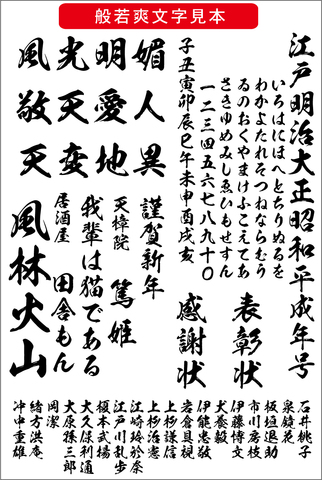 般若爽文字見本
江戸明治大正昭和平成年号
いろはにほへとちりぬるを
わかよたれそつねならむう
ゐのおくやまけふこえてあ
さきゆめみしゑひもせすん
一二三四五六七八九十〇
子丑寅卯辰巳午未申酉戌亥
風光明媚
敬天愛人
天変地異
表彰状
感謝状
謹賀新年
天樟院 篤姫
我輩は猫である
居酒屋 田舎もん
風林火山
石井桃子
泉鏡花
板垣退助
市川房枝
伊藤博文
犬養毅
伊能忠敬
岩倉具視
上杉謙信
上杉治憲
江崎玲於奈
江戸川乱歩
榎本武揚
大久保利通
大原孫三郎
岡潔
緒方洪庵
沖中重雄